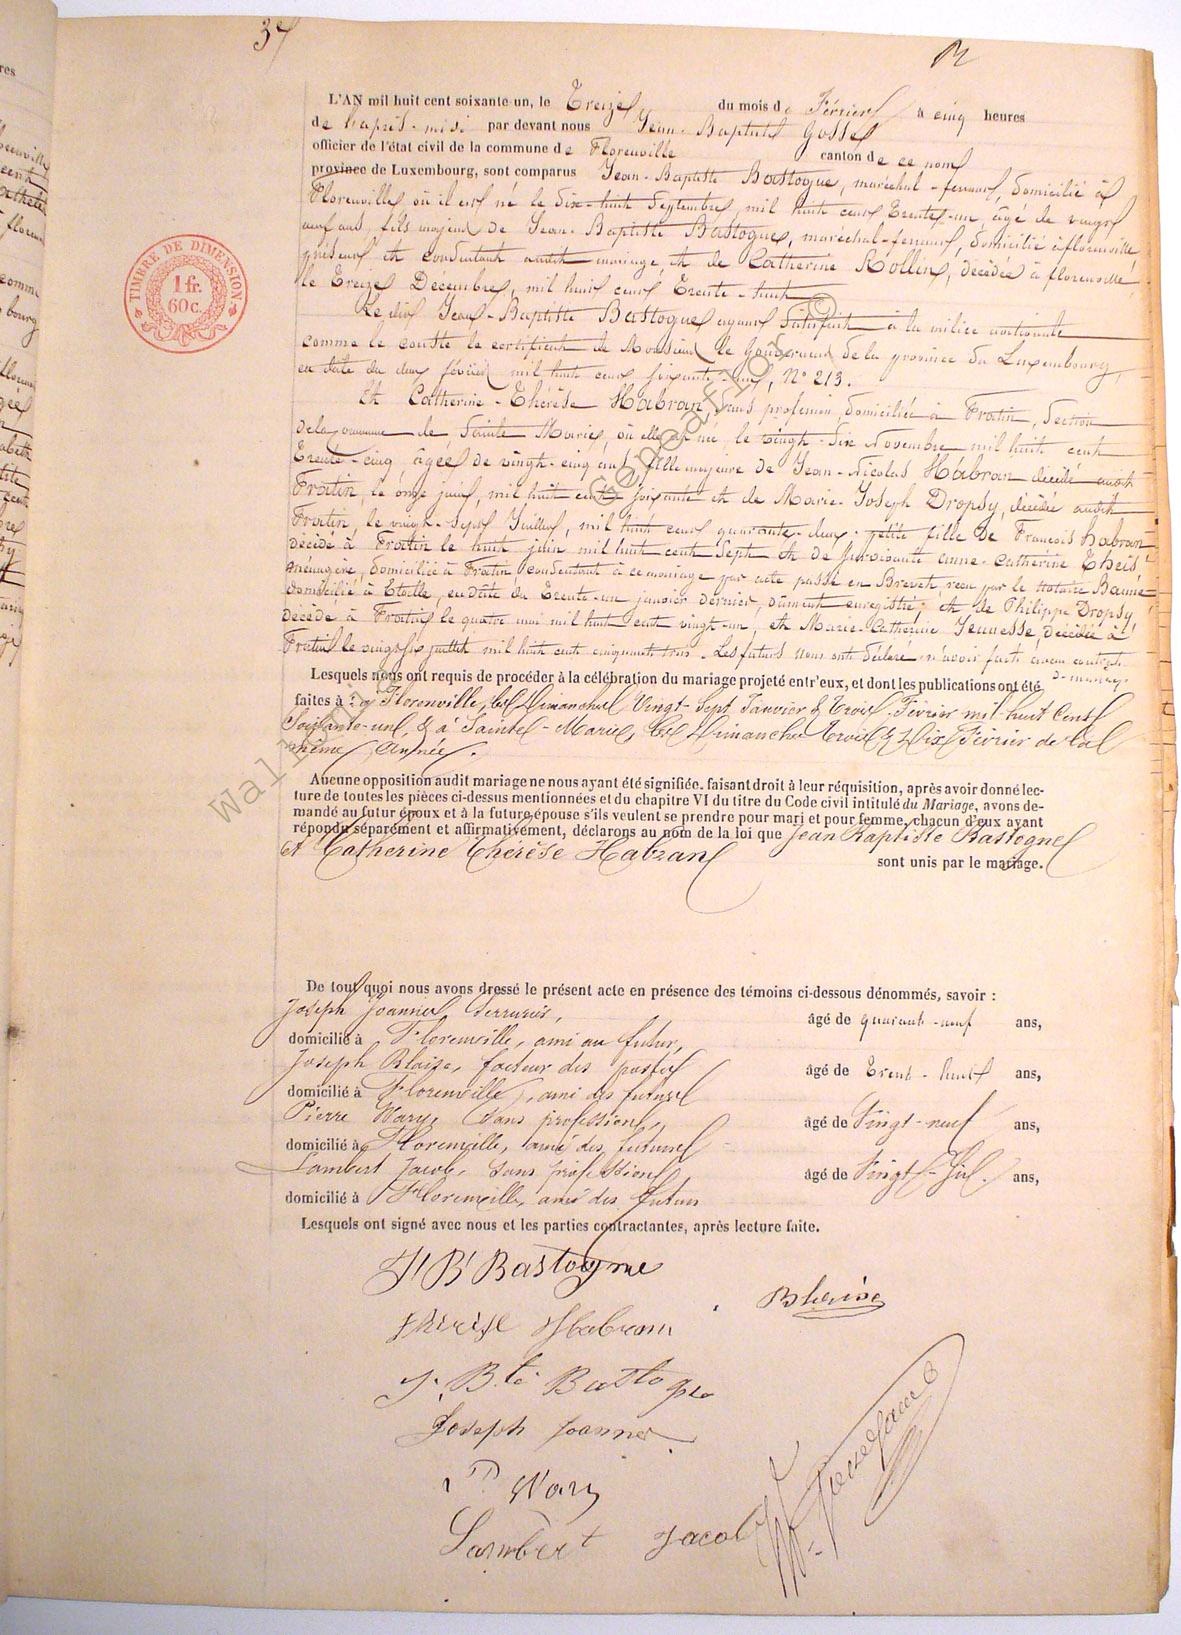 37
L'AN mil huit cent soixante un, le Treize du mois de Février à cinq heures
de l'après-midi par devant nous Jean-Baptiste Gosse
officier de l'état civil de la commune de Florenville canton de ce nom
province de Luxembourg, sont comparus Jean-Baptiste Bastogne, maréchal-ferrant, domicilié à
Florenville où il est né le dix-huit Septembre, mil huit cent Trente-un, âgé de vingt
neuf ans, fils majeur de Jean-Baptiste Bastogne, maréchal-ferrant, domicilié à florenville,
présent et consentant audit mariage, et de Catherine Rollin, décédée à florenville,
le Treize Décembre, mil huit cent Trente-huit
Le dit Jean-Baptiste Bastogne ayant satisfait à la milice nationale
comme le conste le certificat de Monsieur le Gouverneur de la province du Luxembourg,
en date du deux février mil huit cent soixante-un, N° 213.
Et Catherine-Thérèse Habran, sans profession, domiciliée à Fratin, Section
de la commune de Sainte Marie, où elle est née, le vingt-six Novembre mil huit cent
Trente-cinq, âgée de vingt-cinq ans fille majeure de Jean-Nicolas Habran décédé audit
Fratin, le onze juin, mil huit cent soixante et de Marie-Joseph Dropsy, décédée audit
Fratin, le vingt-sept Juillet, mil huit cent quarante-deux; petite fille de François Habran
décédé à Fratin le huit juin mil huit cent Sept et de anne-Catherine Theis
ménagère, domiciliée à Fratin consentant à ce mariage par acte passé en Brevet, reçu par le Notaire Baunée
domicilié à Etalle, en date du Trente-un janvier dernier, dûment enregistré; et de Philippe Dropsy,
décédé à Fratin le quatre mai mil huit cent vingt-un, et Marie-Catherine Jennesse, décédée à
Fratin le vingt six juillet mil huit cent cinquante trois. Les futurs nous ont déclaré n'avoir fait aucun contrat
de mariage.
Lesquels nous ont requis de procéder à la célébration du mariage projeté entr'eux, et dont les publications ont été
faites à Florenville, les Dimanches Vingt-Sept Janvier & Trois Février mil-huit Cent
Soixante-un, & à Sainte-Marie, les Dimanches Trois & Dix Février de la
même année.
Aucune opposition audit mariage ne nous ayant été signifiée, faisant droit à leur réquisition, après avoir donné lec-
ture de toutes les pièces ci-dessus mentionnées et du chapitre VI du titre du Code civil intitulé du Mariage, avons de-
mandé au futur époux et à la future épouse s'ils veulent se prendre pour mari et pour femme, chacun d'eux ayant
répondu séparément et affirmativement, déclarons au nom de la loi que Jean Baptiste Bastogne
et Catherine Thérèse Habran sont unis par le mariage.
De tout quoi nous avons dressé le présent acte en présence des témoins ci-dessous dénommés, savoir :
Joseph Joannes, Serrurier, âgé de quarante-neuf ans,
domicilié à Florenville, ami au futur,
Joseph Blaise, facteur des postes âgé de Trente-huit ans,
domicilié à Florenville, ami des futurs
Pierre Wary, sans profession, âgé de Vingt-neuf ans,
domicilié à Florenville, ami des futurs
Lambert Jacob, sans profession, âgé de Vingt-Six ans,
domicilié à Florenville, ami des futurs
Lesquels ont signé avec nous et les parties contractantes, après lecture faite.
J B Bastogne
Blaise
thérése Habran
J. B.te Bastogne
Joseph Joannes
P Wary
Lambert Jacob
TIMBRE DE DIMENSION
1 fr.
60 c.